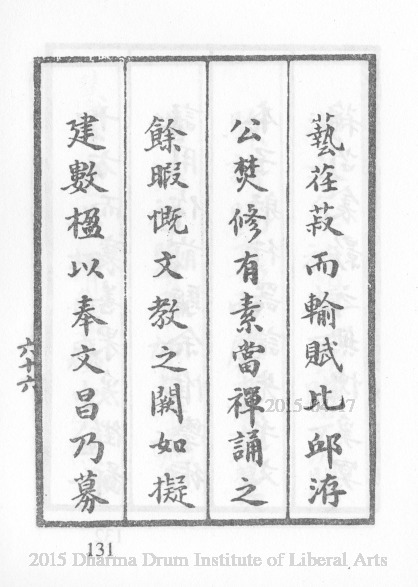 藝荏菽而輸賦比邱洊
公焚修有素當禪誦之
餘暇慨文教之闕如擬
建數楹以奉文昌乃募
六十六
131
2015 Dharma Drum Institute of Liberal Arts